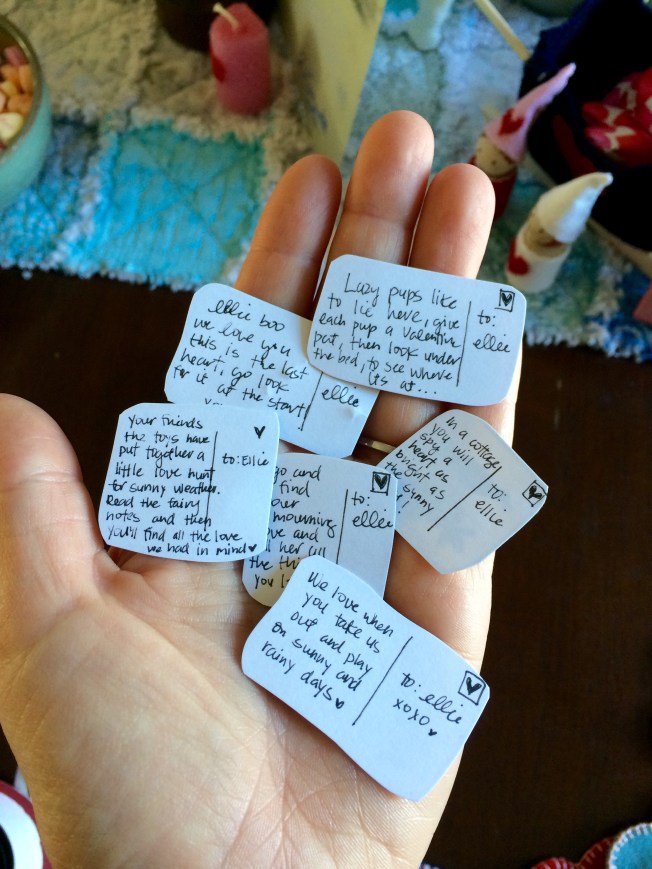 Lazy pups like
to lie here, give
each pup a valentine
pat, then look under
the bed, to see where
its at...
to:
ellie
ellie boo
we love you
this is the last
heart, go look
for it at the start
ellie
your friends
the toys have
put together a
little love hunt
for sunny weather.
Read the fairy
notes and then
you'll find all the love
we had in mind
to: Ellie
In a cottage
you will
spy a
heart as
bright as
the sunny
to:
ellie
go and
find
mourning
and
her all
the
you
to:
ellie
We love when
you take us
out and play
on sunny and
rainy days
to: ellie
xoxo